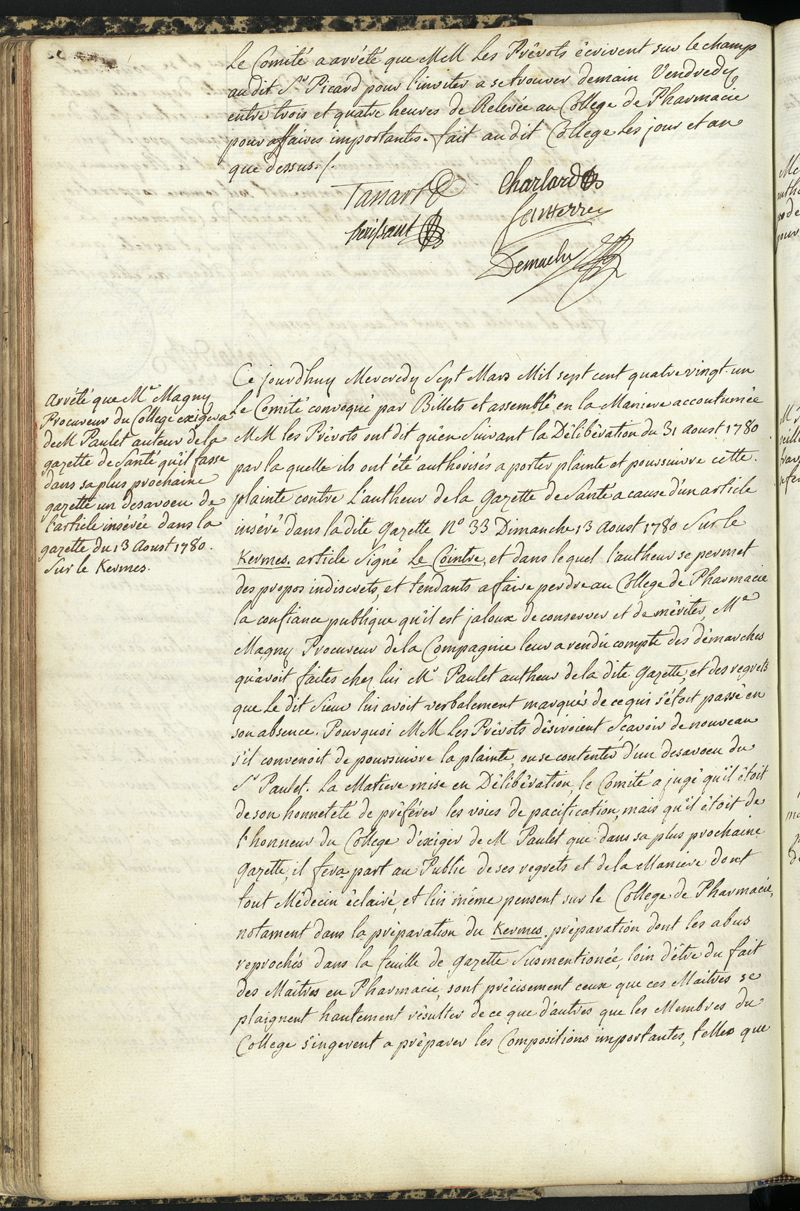 Le Comité a arrêté que MM Les Prévots écrivent sur le champ
au dit Sr. Picard pour l'inviter a se trouver demain Vendredy
entre trois et quatre heures de Relevée au College de Pharmacie
pour affaires importantes. fait au dit College les jour et an
que dessus ./.
Tassart Charlard
Demachy
Arrêté que Mr. Magny
Procureur du College exigera
de M Paulet auteur de la
gazette de Santé qu'il fasse
dans sa plus prochaine
gazette un desavoeu de
l'article insérée dans la
gazette du 13 Aoust 1780.
Sur le Kermes.
Ce jourdhuy Mercredy Sept Mars Mil sept cent quatre vingt un
Le Comité convoqué par Billets et assemblé en la Maniere accoutumée
MM les Prévots ont dit qu'en Suivant la Délibération du 31 aoust 1780
par la quelle ils ont été authorisés a porter plainte et poursuivre cette
plainte contre L'autheur de la Gazette de Santé a cause d'un article
inséré dans la dite Gazette No 33 Dimanche 13 Aoust 1780 Sur le
Kermes. article Signé Le Cointre, et dans le quel l'autheur se permet
des propos indiscrets, et tendants a faire perdre au College de Pharmacie
la confiance publique qu'il est jaloux de conserver et de mériter, Me
Magny Procureur de la Compagnie leur a rendu compte des démarches
qu'avoit faites chez lui Mr Paulet autheur de la dite Gazette, et des regrets
que Le dit Sieur lui avoit verbalement marqués de ce qui s'étoit passé en
son absence. Pourquoi MM Les Prévots désiroient Scavoir de nouveau
s'il convenoit de poursuivre la plainte, ou se contenter d'un desavoeu du
Sr Paulet. La Matiere mise en Délibération, le Comité a jugé qu'il étoit
de son honneteté de préférer les voies de pacification, mais qu'il étoit de
l'honneur du College d'éxiger de M Paulet que dans sa plus prochaine
gazette, il fera part au Public de ses regrets et de la Maniere dont
tout Médecin éclairé, et lui même pensent sur le College de Pharmacie,
notament dans la préparation du Kermes, préparation dont les abus
reprochés dans la feuille de gazette Susmentionée, loin d'être du fait
des Maîtres en Pharmacie, sont précisement ceux que ces Maitres se
plaignent hautement résulter de ce que d'autres que les Membres du
College s'ingerent a préparer les Compositions importantes, telles que